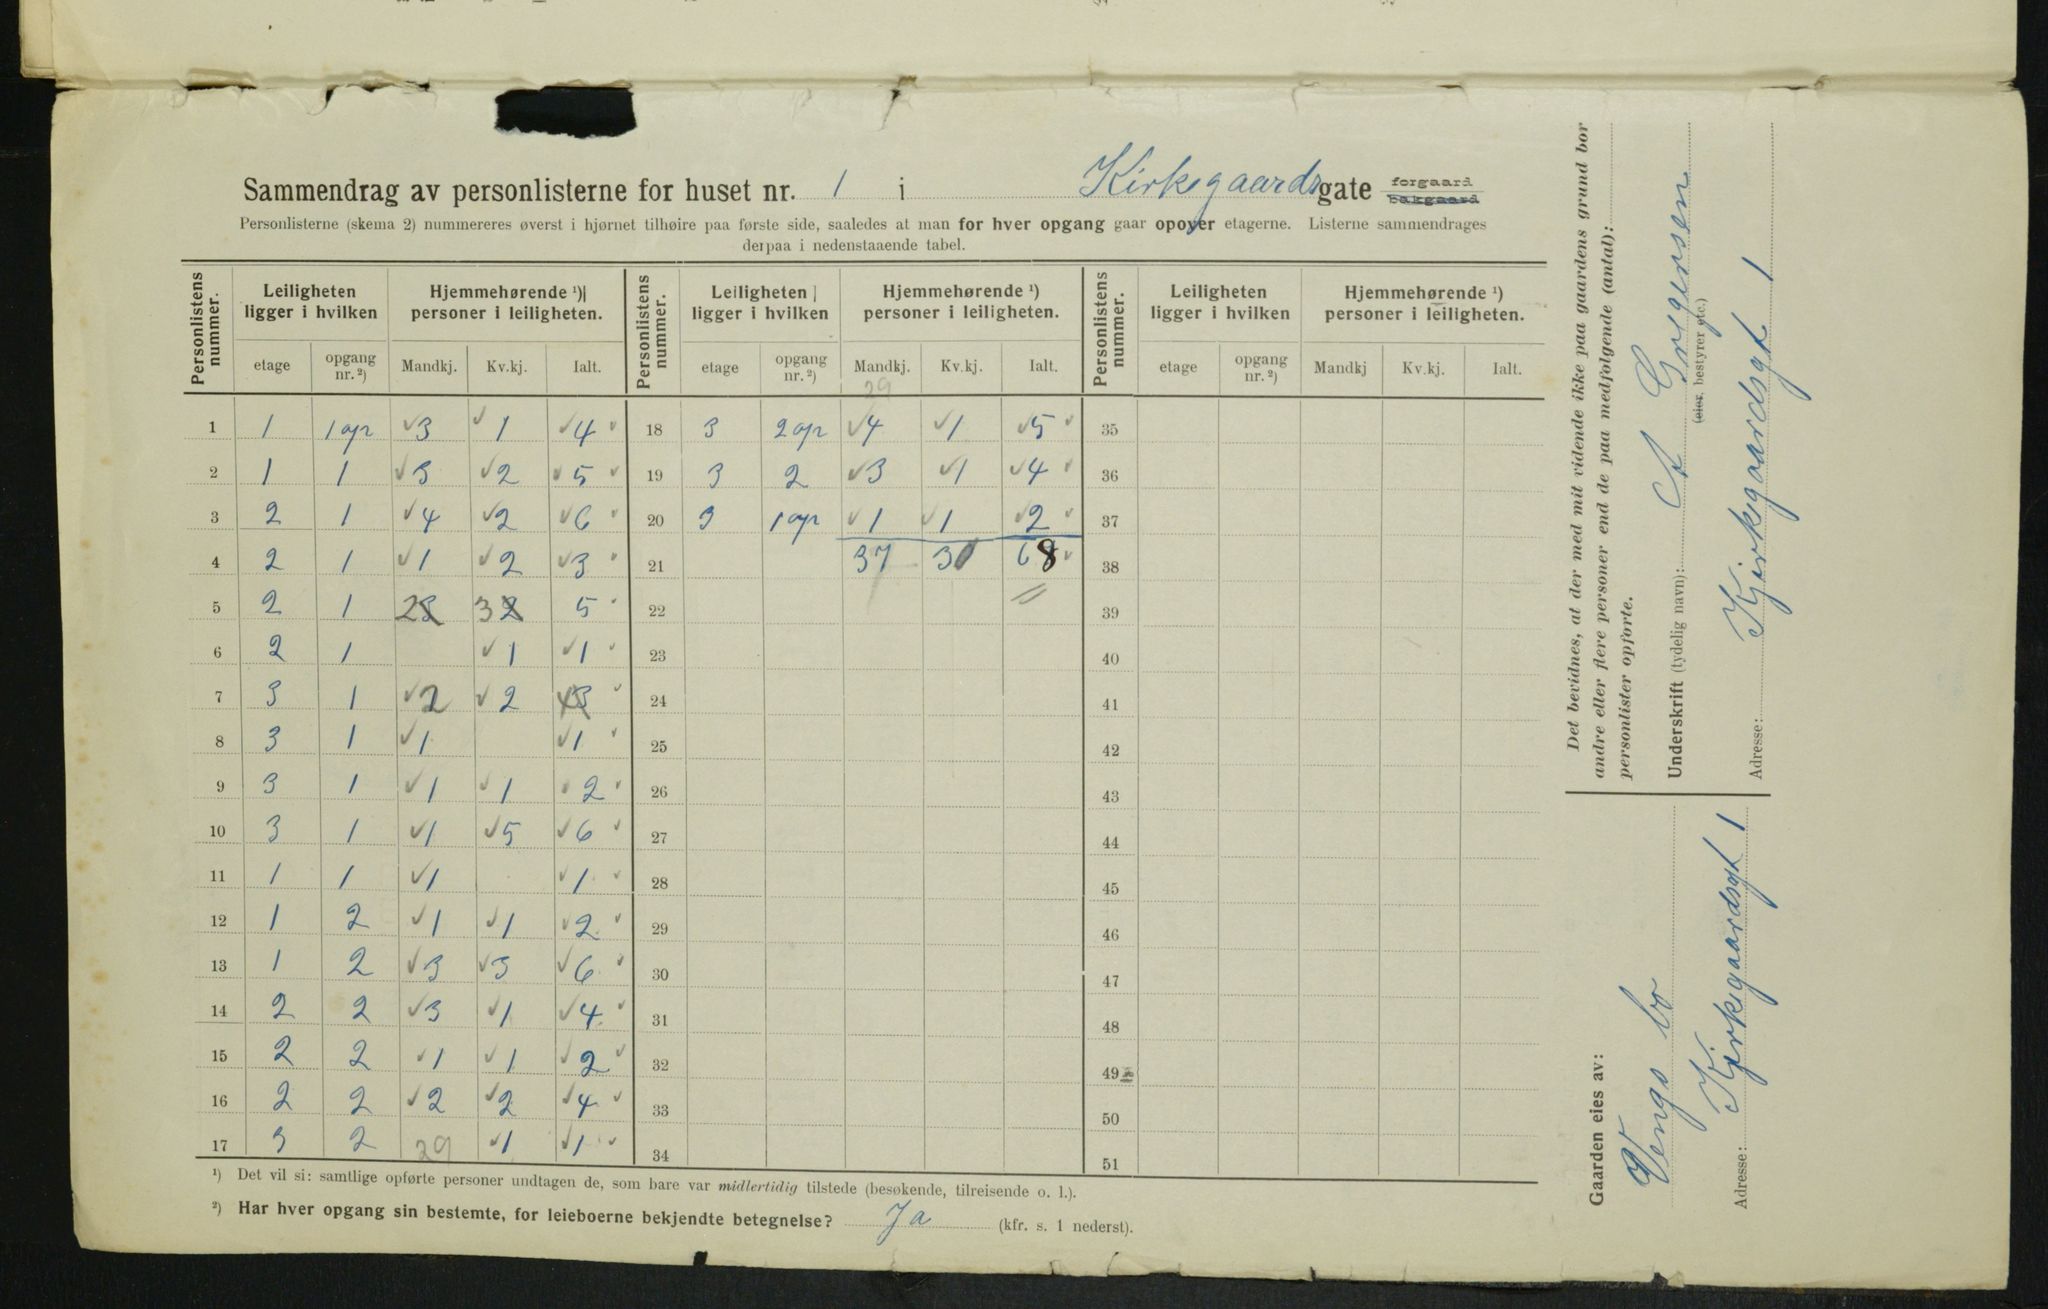 Sammendrag av personlisterne for huset nr. 1 i Kirkegaardsgate forgaard
bakgaard
Personlisterne (skema 2) nummereres øverst i hjørnet tilhøire paa første side, saaledes at man for hver opgang gaar opover etagerne. Listerne sammendrages
derpaa i nedenstaaende tabel.
Personlistens nummer. | Leiligheten ligger i hvilken | Hjemmehørende ¹) personer i leiligheten. | Personlistens nummer. | Leiligheten ligger i hvilken | Hjemmehørende ¹) personer i leiligheten. | Personlistens nummer. | Leiligheten ligger i hvilken | Hjemmehørende ¹) personer i leiligheten.
etage | opgang nr.²) | Mandkj. | Kv.kj. | Ialt. | etage | opgang nr.²) | Mandkj. | Kv.kj. | Ialt. | etage | opgang nr.²) | Mandkj | Kv.kj. | Ialt.
29
1 | 1 | 1 op | 3 | 1 | 4 | 18 | 3 | 2 op | 4 | 1 | 5 | 35
2 | 1 | 1 | 3 | 2 | 5 | 19 | 3 | 2 | 3 | 1 | 4 | 36
3 | 2 | 1 | 4 | 2 | 6 | 20 | 3 | 1 op | 1 | 1 | 2 | 37
4 | 2 | 1 | 1 | 2 | 3 | 21 | | | 37 | 31 | 68 | 38
5 | 2 | 1 | 2 3 | 3 2 | 5 | 22 | 39
6 | 2 | 1 | | 1 | 1 | 23 | 40
7 | 3 | 1 | 2 | 2 | 4 3 | 24 | 41
8 | 3 | 1 | 1 | | 1 | 25 | 42
9 | 3 | 1 | 1 | 1 | 2 | 26 | 43
10 | 3 | 1 | 1 | 5 | 6 | 27 | 44
11 | 1 | 1 | 1 | | 1 | 28 | 45
12 | 1 | 2 | 1 | 1 | 2 | 29 | 46
13 | 1 | 2 | 3 | 3 | 6 | 30 | 47
14 | 2 | 2 | 3 | 1 | 4 | 31 | 48
15 | 2 | 2 | 1 | 1 | 2 | 32 | 49
16 | 2 | 2 | 2 | 2 | 4 | 33 | 50
17 | 3 | 2 | 29 | 1 | 1 | 34 | 51
¹) Det vil si: samtlige opførte personer undtagen de, som bare var midlertidig tilstede (besøkende, tilreisende o. l.).
²) Har hver opgang sin bestemte, for leieboerne bekjendte betegnelse? Ja (kfr. s. 1 nederst).
Det bevidnes, at der med mit vidende ikke paa gaardens grund bor
andre eller flere personer end de paa medfølgende (antal):
personlister opførte.
Underskrift (tydelig navn): A Gregersen
(eier, bestyrer etc.)
Adresse: Kirkegaardsgt 1
Gaarden eies av:
Adresse: Kirkegaardsgt 1